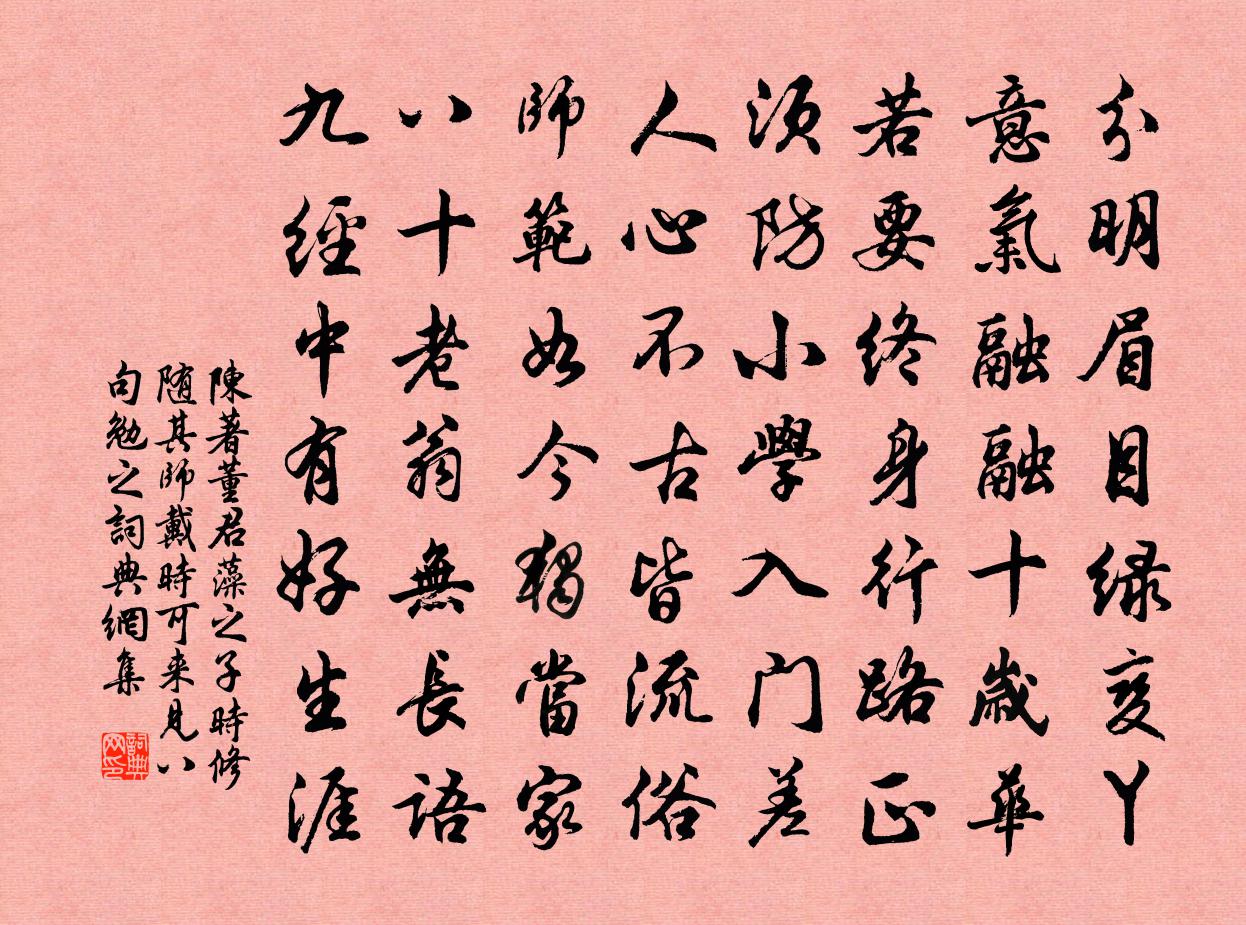 分明眉目緑变丫
意氣融融十歲華
若要終身行路正
須防小學入门差
人心不古皆流俗
師範如今獨當家
八十老翁無長語
九經中有好生涯
陳著董君藻之子時修
随其師戴時可来見八
句勉之詞典網集
詞典网印